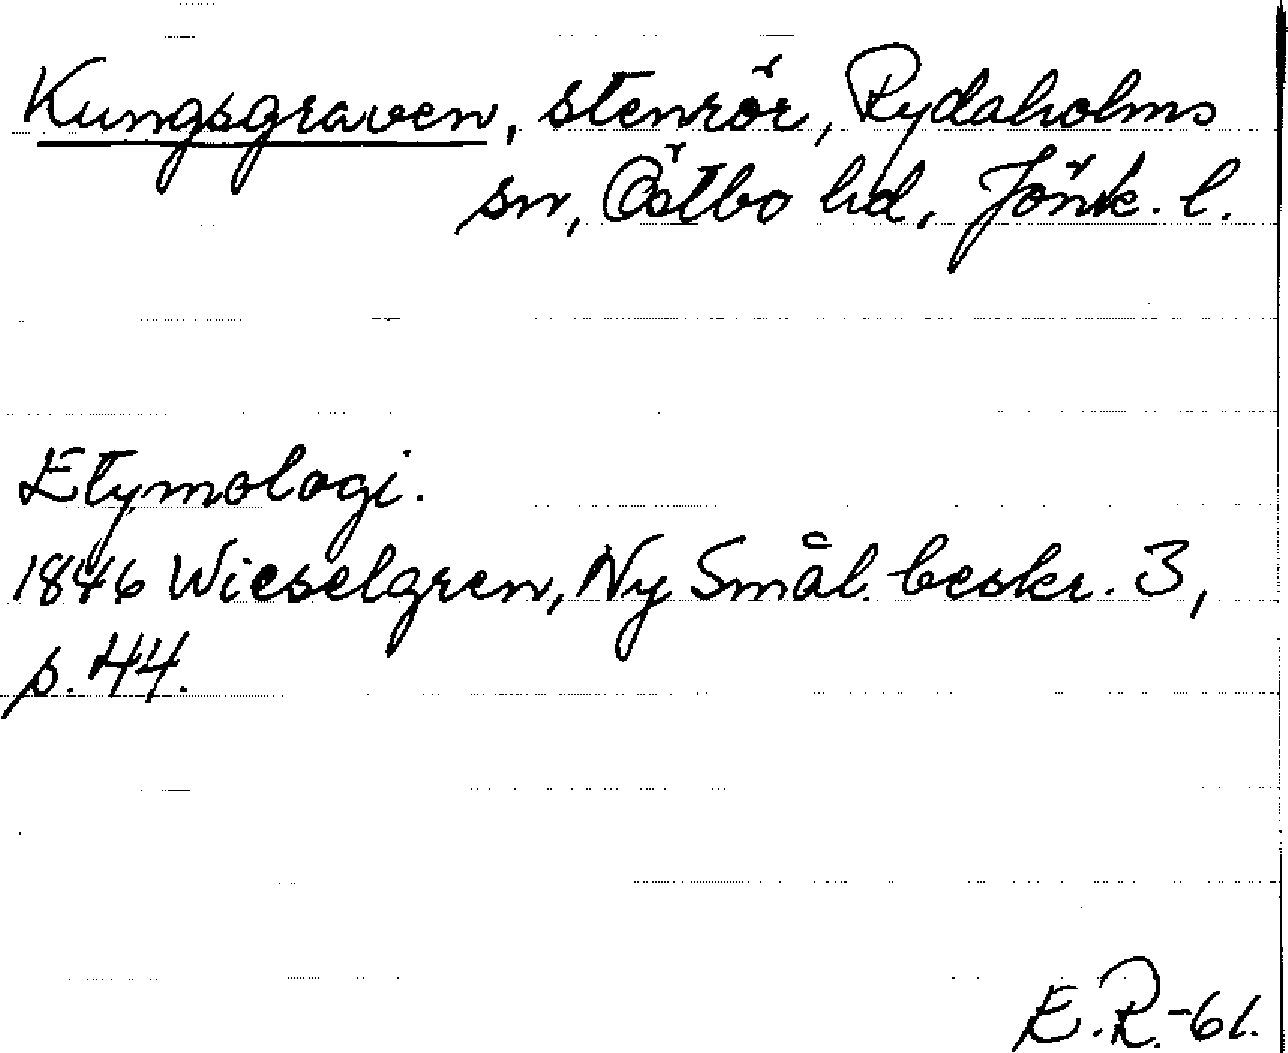 Kungsgraven, stenrör, Rydaholms
sn, Östbo hd, Jönk. l.
Etymologi.
1846 Wieselgren, Ny Smål. beskr. 3,
s. 44.
E.R.-61.